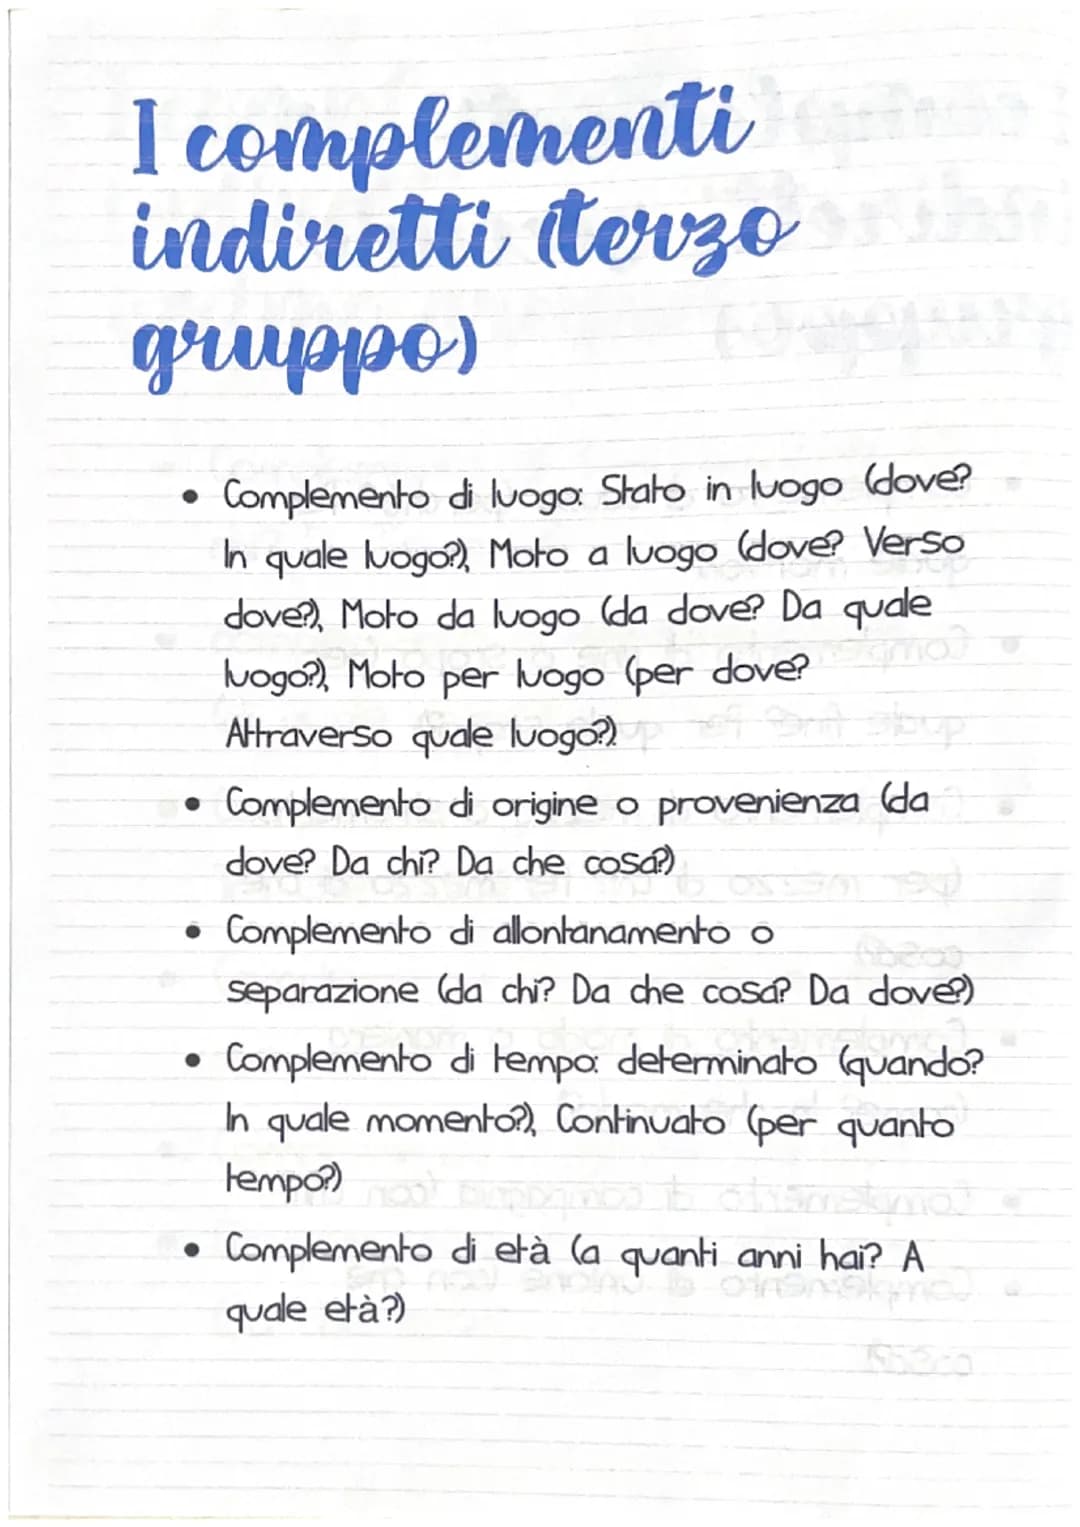 I complementi
indiretti (terzo
gruppo)
• Complemento di luogo: Stato in luogo (dove?
In quale luogo?), Moto a luogo (dove? Verso
dove?), Moto da luogo (da dove? Da quale
luogo?), Moto per luogo (per dove?
Attraverso quale luogo?).
• Complemento di origine o provenienza (da
dove? Da chi? Da che cosa?)
• Complemento di allontanamento o
separazione (da chi? Da che cosa? Da dove?)
• Complemento di tempo: determinato (quando?
In quale momento?), Continuato (per quanto
tempo?)
• Complemento di età (a quanti anni hai? A
quale età?)